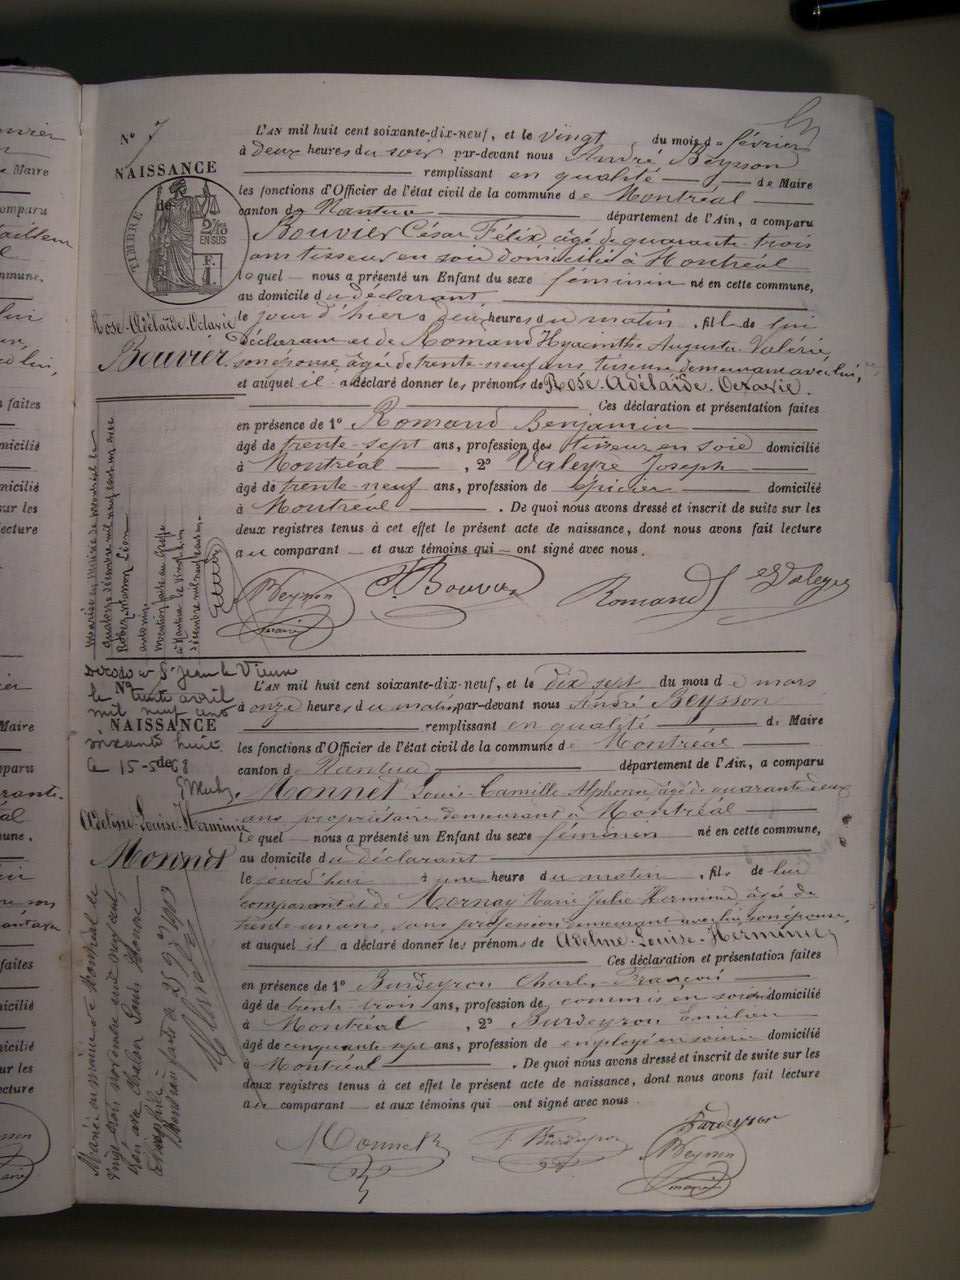 N° 7
NAISSANCE
de
TIMBRE
2/10
EN SUS
F.
1
Rose-Adélaïde-Octavie
Bouvier.
L'AN mil huit cent soixante-dix-neuf, et le vingt du mois de février
à deux heures du soir par-devant nous André Beysson
remplissant en qualité de Maire
les fonctions d'Officier de l'état civil de la commune de Montréal
canton de Nantua département de l'Ain, a comparu
Bouvier César Félix âgé de quarante-trois
ans tisseur en soie domicilié à Montréal
lequel nous a présenté un Enfant du sexe féminin né en cette commune,
au domicile du déclarant
le jour d'hier à deux heures du matin, fille de lui
déclarant et de Romand Hyacinthe Augusta Valérie,
son épouse, âgée de trente-neuf ans, tisseuse demeurant avec lui,
et auquel il a déclaré donner les prénoms de Rose. Adélaïde. Octavie.
Ces déclaration et présentation faites
en présence de 1° Romand Benjamin
âgé de trente-sept ans, profession de tisseur en soie domicilié
à Montréal, 2° Valeyre Joseph
âgé de trente-neuf ans, profession de épicier domicilié
à Montréal. De quoi nous avons dressé et inscrit de suite sur les
deux registres tenus à cet effet le présent acte de naissance, dont nous avons fait lecture
au comparant et aux témoins qui ont signé avec nous.
Beysson
maire
F. Bouvier
Romand
Valeyre
Mariée en mairie de Montréal le
quatorze décembre mil neuf cent un avec
Robez-masson Léon
antonin.
mention faite au Greffe
à Nantua le vingt
décembre mil neuf cent un.
Décédée à St Jean le Vieux
le trente avril
mil neuf cent
soixante huit
le 15-5-68
N°
NAISSANCE
de
Adeline-Louise-Herminie
Monnet
L'AN mil huit cent soixante-dix-neuf, et le dix sept du mois de mars
à onze heures du matin par-devant nous André Beysson
remplissant en qualité de Maire
les fonctions d'Officier de l'état civil de la commune de Montréal
canton de Nantua département de l'Ain, a comparu
Monnet Louis-Camille Alphonse âgé de quarante deux
ans propriétaire demeurant à Montréal
lequel nous a présenté un Enfant du sexe féminin né en cette commune,
au domicile du déclarant
le jourd'hui à une heure du matin, fille de lui
comparant et de Mornay Marie Julie Herminie âgée de
trente un ans, sans profession demeurant avec lui son épouse,
et auquel il a déclaré donner les prénoms de Adeline-Louise-Herminie
Ces déclaration et présentation faites
en présence de 1° Burdeyron Charles François
âgé de trente-trois ans, profession de commis en soierie domicilié
à Montréal, 2° Burdeyron Emilien
âgé de cinquante-sept ans, profession de employé en soierie domicilié
à Montréal. De quoi nous avons dressé et inscrit de suite sur les
deux registres tenus à cet effet le présent acte de naissance, dont nous avons fait lecture
au comparant et aux témoins qui ont signé avec nous.
Monnet
Burdeyron
Burdeyron
Beysson
maire
Mariée en mairie de Montréal le
vingt trois novembre mil neuf cent
avec Louis Honoré